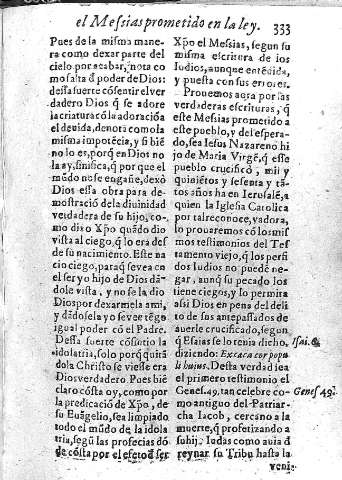 el Messias prometido en la ley. 333
Pues de la misma mane-
ra como dexar parte del
cielo por acabar, nota co
mo falta d̃ poder de Dios:
dessa suerte cõsentir el ver
dadero Dios q̃ se adore
la criatura cõ la adoraciõ a
el deuida, denota como la
misma impotẽcia, y si biẽ
no lo es, porq̃ en Dios no
la ay, sinifica, q̃ por que el
mũdo no se engañe, dexò
Dios essa obra para de-
mostraciõ de la diuinidad
verdadera de su hijo, co-
mo dixo Xp̃o quãdo dio
vista al ciego, q̃ lo era des
de su nacimiento. Este na
cio ciego, paraq̃ se vea en
el ser yo hijo de Dios dã-
dole vista, y no se la dio
Dios por dexarmela a mi,
y dãdosela yo se vee tẽgo
igual poder cõ el Padre.
Dessa suerte cõsintio la
idolatria, solo porq̃ quitã
dola Christo se viesse era
Dios verdadero Pues biẽ
claro cõsta oy, como por
la predicaciõ de Xp̃o, de
su Euãgelio, sea limpiado
todo el mũdo de la idola
tria, segũ las profecias dõ
de cõsta por el efeto q̃ ser
Xp̃o el Messias, segun su
misma escritura de los
Iudios, aunque entẽdida,
y puesta con sus errores.
Prouemos aora por las
verdaderas escrituras, q̃
este Messias prometido a
este pueblo, y del espera-
do, sea Iesus Nazareno hi
jo de Maria Virgẽ, q̃ esse
pueblo crucificò, mil y
quiniẽtos y sesenta y tã-
tos años ha en Ierusalẽ, a
quien la Iglesia Catolica
por tal reconoce, y adora,
lo prouaremos cõ los mis
mos testimonios del Tes
tamento viejo, q̃ los perfi
dos Iudios no puedẽ ne-
gar, aunq̃ su pecado los
tiene ciegos, y lo permita
assi Dios en pena del deli-
to de sus antepassados de
auerle crucificado, segun
q̃ Esaias se lo tenia dicho,
diziendo: Excæca cor popu
li huius. Desta verdad sea
el primero testimonio el
Genes. 49. tan celebre co-
mo antiguo del Patriar-
cha Iacob, cercano a la
muerte, q̃ profetizando a
su hijo Iudas como auia d̃
reynar su Tribu hasta la
veni-
Isai. 6.
Genes. 49.